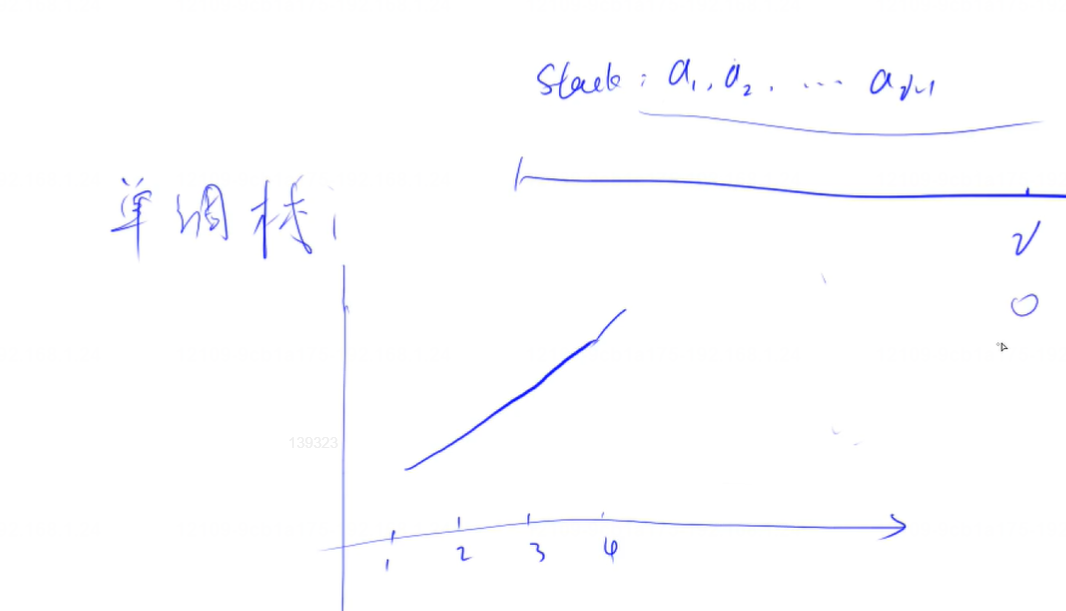 Stack: a₁, a₂, ... aᵢ₋₁
单调栈:
i
0
139323
1 2 3 4